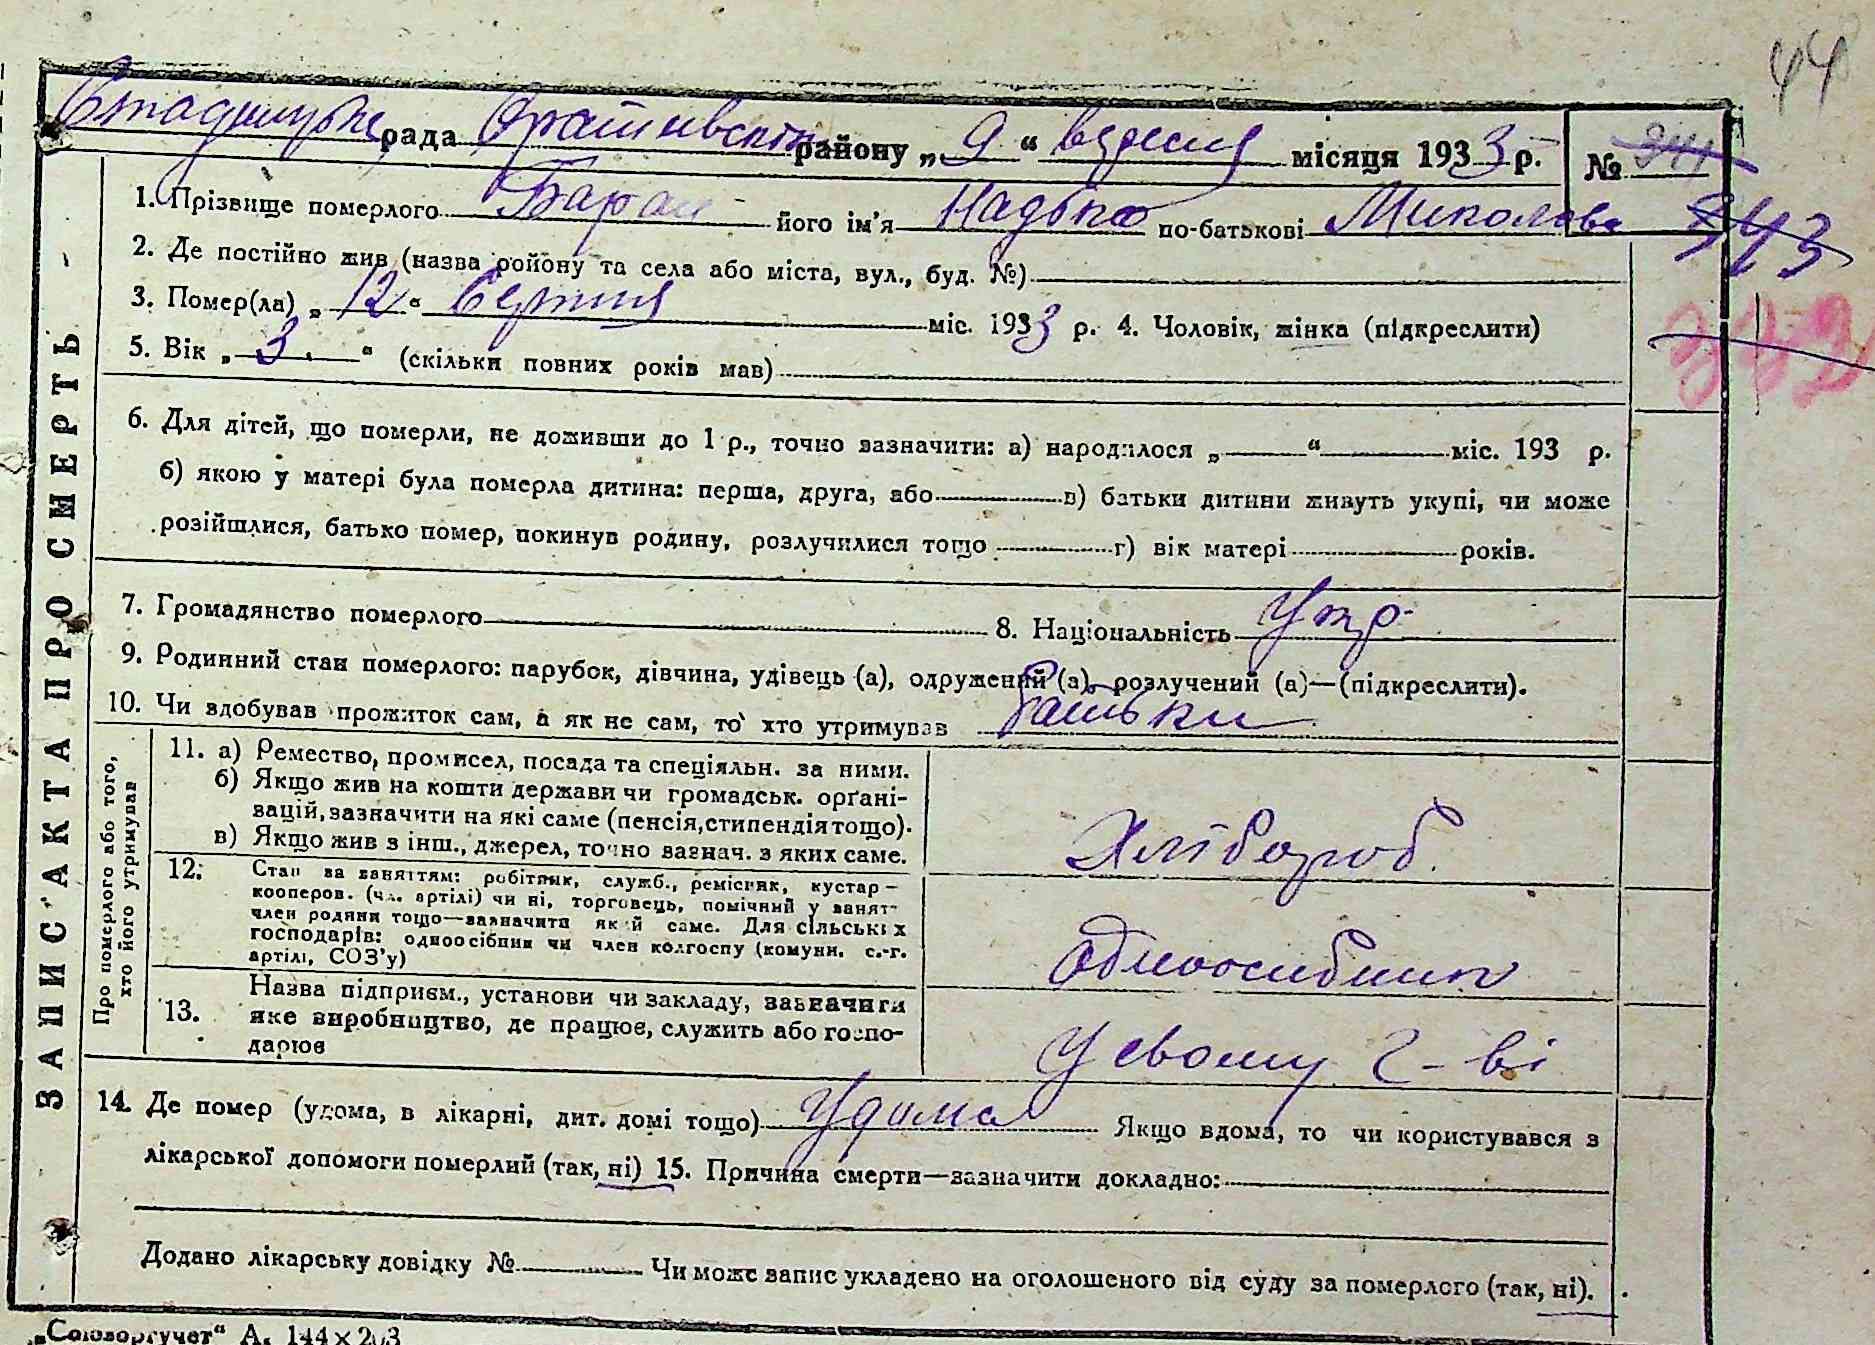 44
рада району „9“ вересня місяця 1933 р. №
1. Прізвище померлого Баран його ім’я Надька по-батькові Миколаве 343
2. Де постійно жив (назва району та села або міста, вул., буд. №)
3. Помер(ла) „12“ Серпня міс. 1933 р. 4. Чоловік, жінка (підкреслити)
5. Вік „3“ (скільки повних років мав)
6. Для дітей, що померли, не доживши до 1 р., точно зазначити: а) народилося „ “ міс. 193 р.
б) якою у матері була померла дитина: перша, друга, або в) батьки дитини живуть укупі, чи може
розійшлися, батько помер, покинув родину, розлучилися тощо г) вік матері років.
7. Громадянство померлого 8. Національність Укр.
9. Родинний стан померлого: парубок, дівчина, удівець (а), одружений (а), розлучений (а)—(підкреслити).
10. Чи здобував прожиток сам, а як не сам, то хто утримував батьки
ЗАПИСКА ПРО СМЕРТЬ
Про померлого або того, хто його утримував
11. а) Ремество, промисел, посада та спеціяльн. за ними.
б) Якщо жив на кошти держави чи громадськ. орґані-
зацій, зазначити на які саме (пенсія, стипендія тощо).
в) Якщо жив з інш., джерел, точно зазнач. з яких саме.
Хлібороб.
12. Стан за заняттям: робітник, служб., ремісник, кустар—
кооперов. (чл. артілі) чи ні, торговець, помічний у занят-
член родини тощо—зазначити який саме. Для сільських
господарів: одноосібник чи член колгоспу (комуни, с.-г.
артілі, СОЗ’у)
одноосибник
13. Назва підприєм., установи чи закладу, зазначити
яке виробництво, де працює, служить або госпо-
дарює
У свому г-ві
14. Де помер (удома, в лікарні, дит. домі тощо) Удома Якщо вдома, то чи користувався з
лікарської допомоги померлий (так, ні) 15. Причина смерти—зазначити докладно:
Додано лікарську довідку № Чи може запис укладено на оголошеного від суду за померлого (так, ні).
„Союзоргучет“ А. 144×203